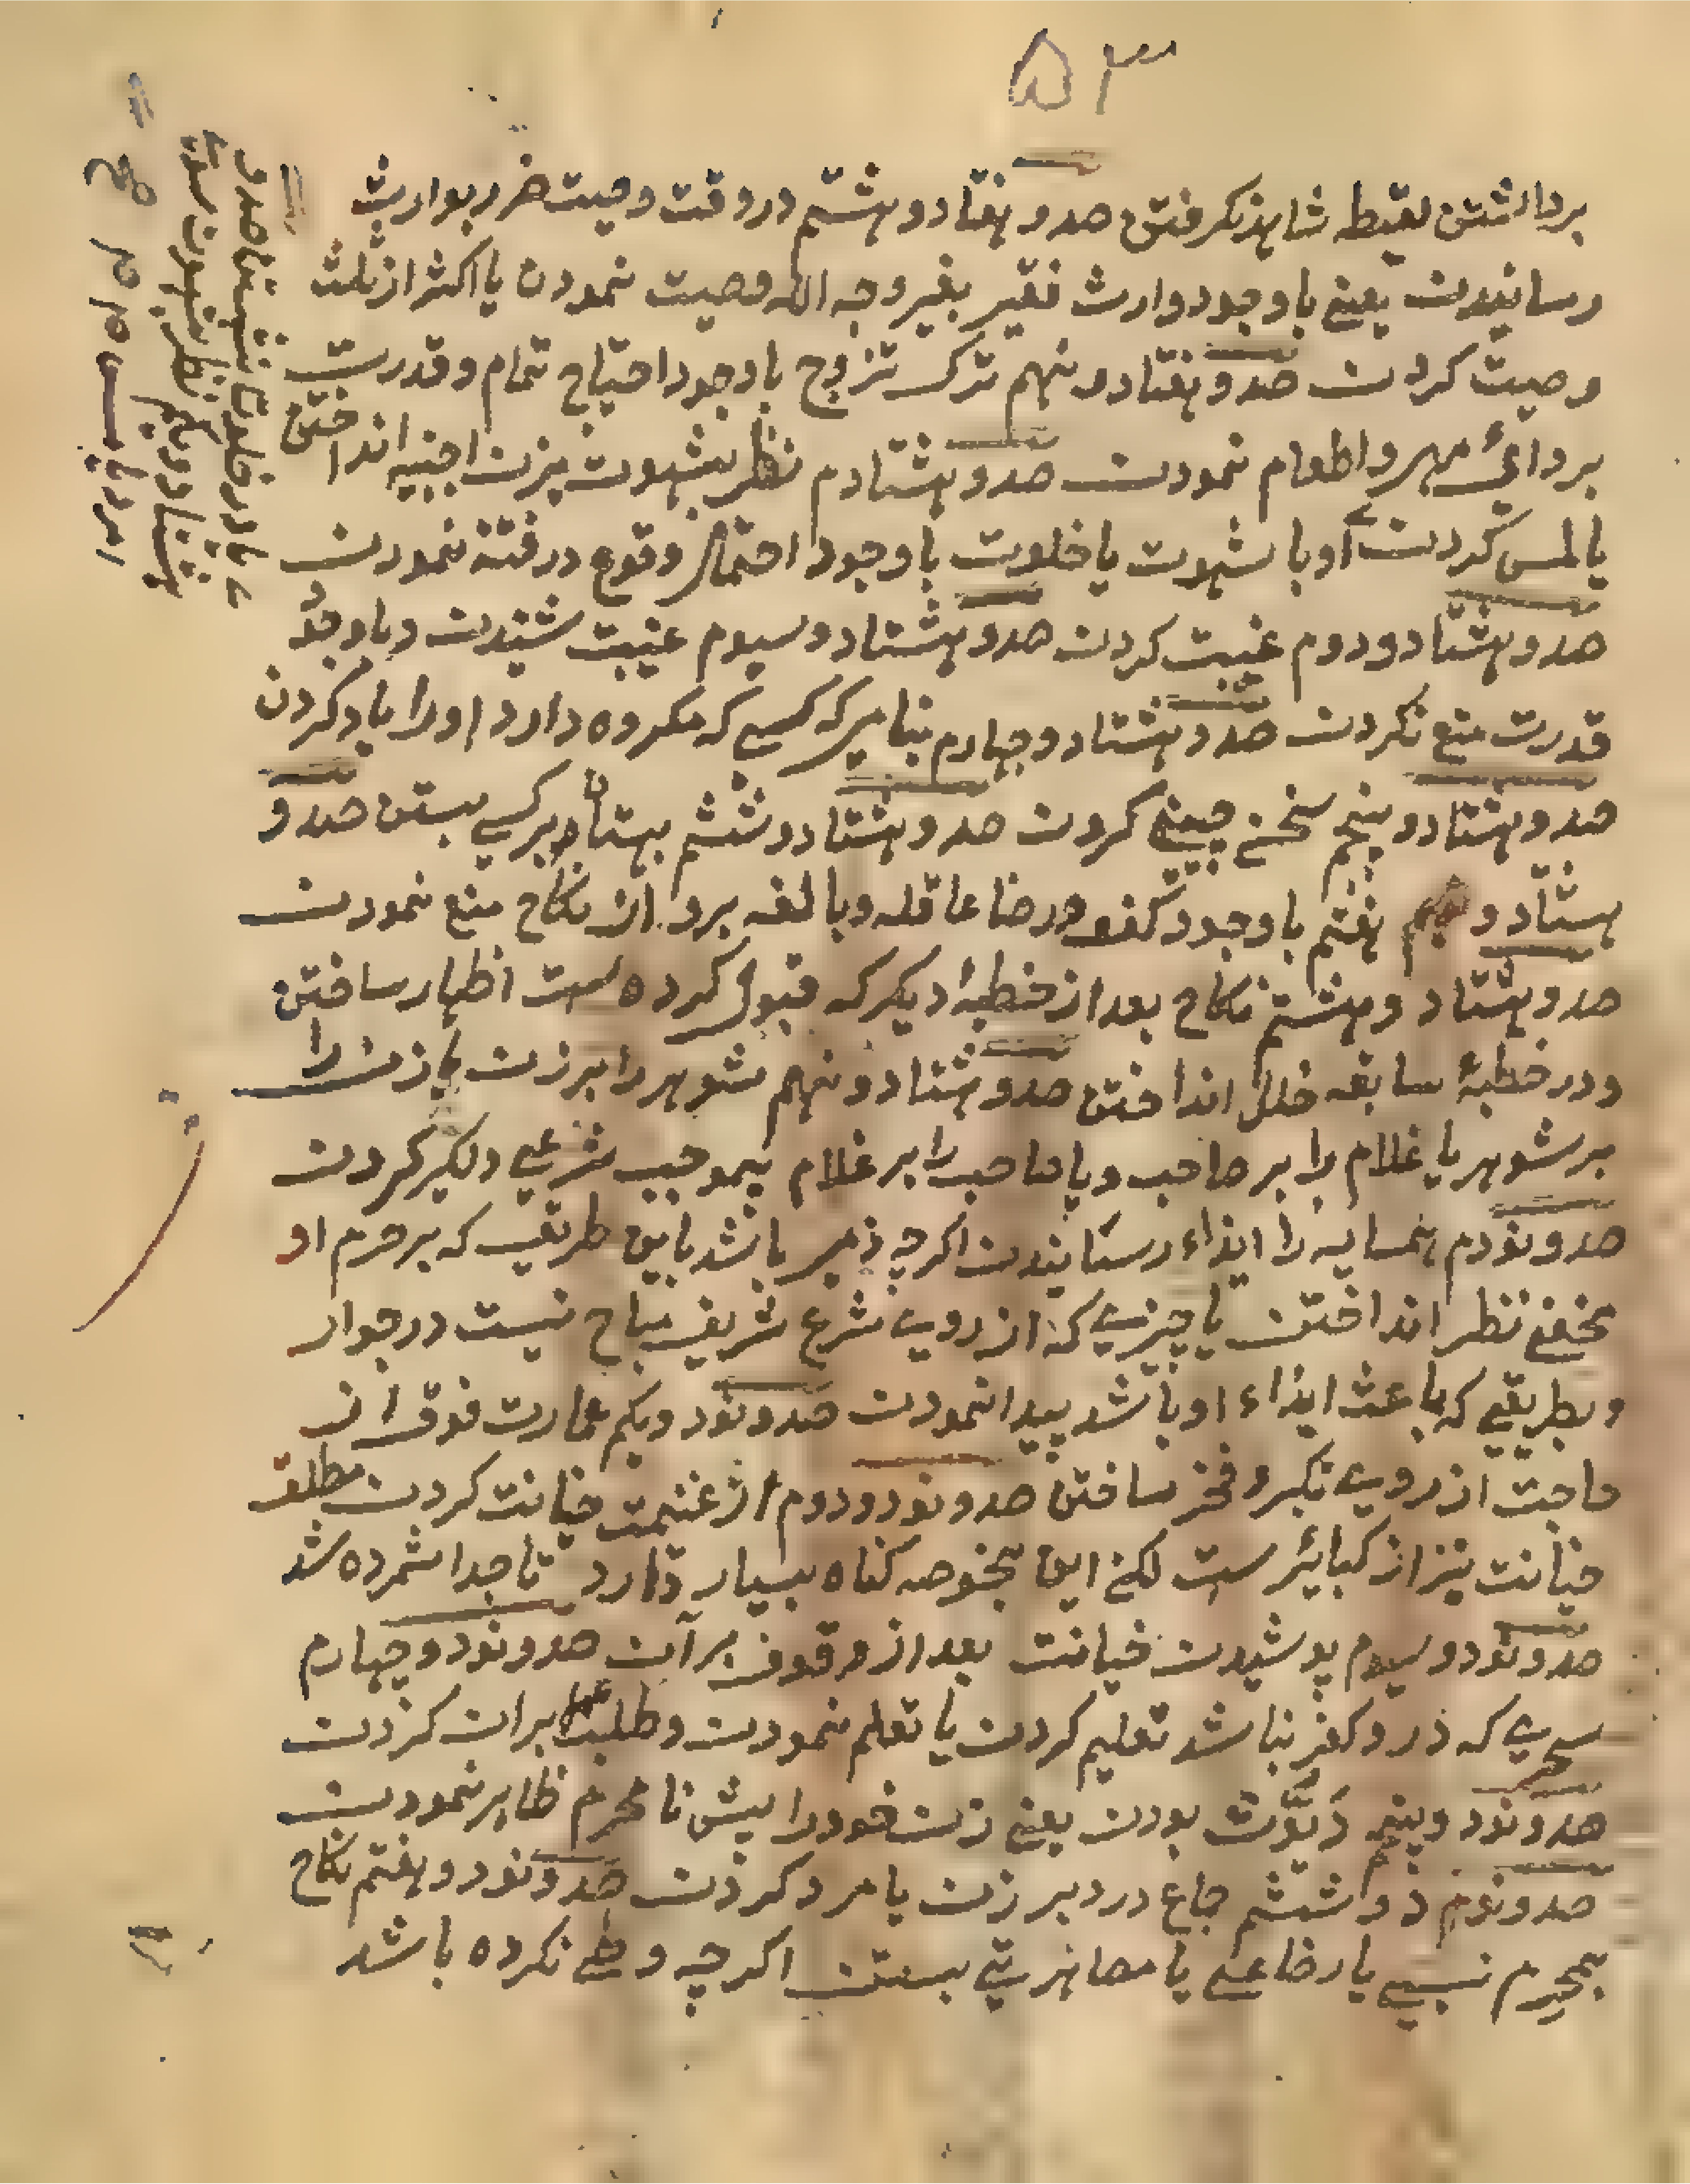 ۵۳
برداشتن لقیطه شاهد نکرفتن صد و هفتاد و هشتم در وقت وصیت ضرر بوارث
رسانیدن یعنی باوجود وارث فقیر بغیر وجه الله وصیت نمودن یا اکثر از ثلث
وصیت کردن صد و هفتاد و نهم ترک تزوج باوجود احتیاج تمام و قدرت
بر دای مهر و اطعام نمودن صد و هشتادم نظر بشهوت بزن اجنبیه انداختن
یا لمس کردن او با شهوت یا خلوت باوجود احتمال وقوع در فتنه نمودن
صد و هشتاد و دوم غیبت کردن صد و هشتاد و سیوم غیبت شنیدن و باوجود
قدرت منع نکردن صد و هشتاد و چهارم بنامی که کسی که مکروه دارد او را یاد کردن
صد و هشتاد و پنجم سخن چینی کردن صد و هشتاد و ششم بهتان بر کسی بستن صد و
هستاد و هفتم باوجود کفو و رضا عاقله و بالغه برو از نکاح منع نمودن
صد و هشتاد و هشتم نکاح بعد از خطبهٔ دیکر که قبول کرده است اظهار ساختن
و در خطبهٔ سابقه خلل انداختن صد و هشتاد و نهم شوهر را بر زن یا زن را
بر شوهر یا غلام را بر صاحب و یا صاحب را بر غلام بیموجب شرعی دلکیر کردن
صد و نودم همسایه را ایذاء رسانیدن اکرچه ذمی باشد باین طریق که بر حرم او
مخفی نظر انداختن یا چیزی که از روی شرع شریف مباح نیست در جوار
و بطریقی که باعث ایذاء او باشد پیدا نمودن صد و نود و یکم عمارت فوق از
حاجت از روی تکبر و فخر ساختن صد و نود و دوم از غنیمت خیانت کردن مطلق
خیانت نیز از کبائر ست لکن این بخوصه کناه بسیار دارد تا جدا شمرده شد
صد و نود و سیوم پوشیدن خیانت بعد از وقوف بر آن صد و نود و چهارم
سحری که در و کفر نباشد تعلیم کردن یا تعلم نمودن و طلب عمل بران کردن
صد و نود و پنجم دَیُّوث بودن یعنی زن خود را پیش نامحرم ظاهر نمودن
صد و نود و ششم جماع در دبر زن یا مرد کردن صد و نود و هفتم نکاح
بمحرم نسبی یا رضاعی یا مصاهرتی بستن اکرچه وطی نکرده باشد
یا در خلوت نشستن صد و
هشتاد و یکم نظر بشهوت سوی
امرد یا